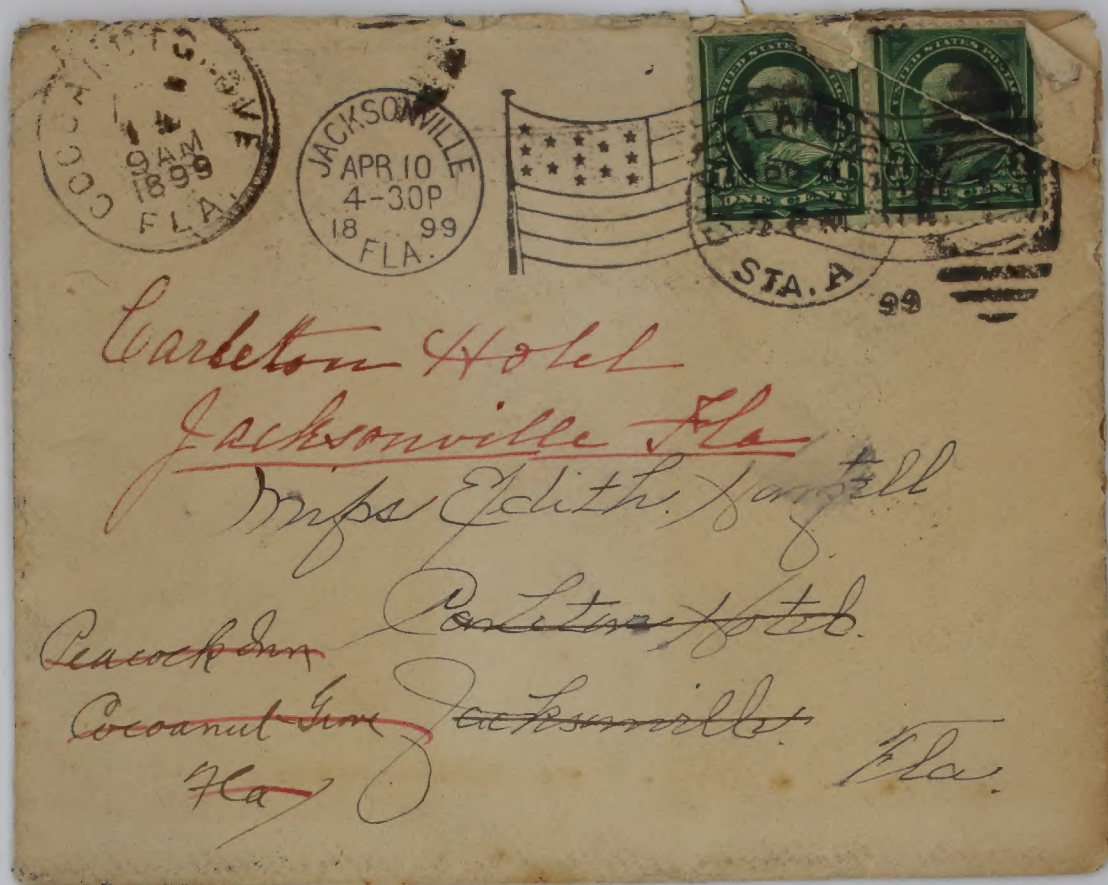 COCOANUT GROVE
AM
9
1899
FLA.
JACKSONVILLE
APR. 10
4-30P
18 99
FLA.
UNITED STATES POSTAGE
ONE CENT
UNITED STATES POSTAGE
ONE CENT
STA. A
99
Carleton Hotel
Jacksonville Fla
Miss Edith.
Carleton Hotel.
Jacksonville.
Fla.
Peacock Inn
Cocoanut Grove
Fla